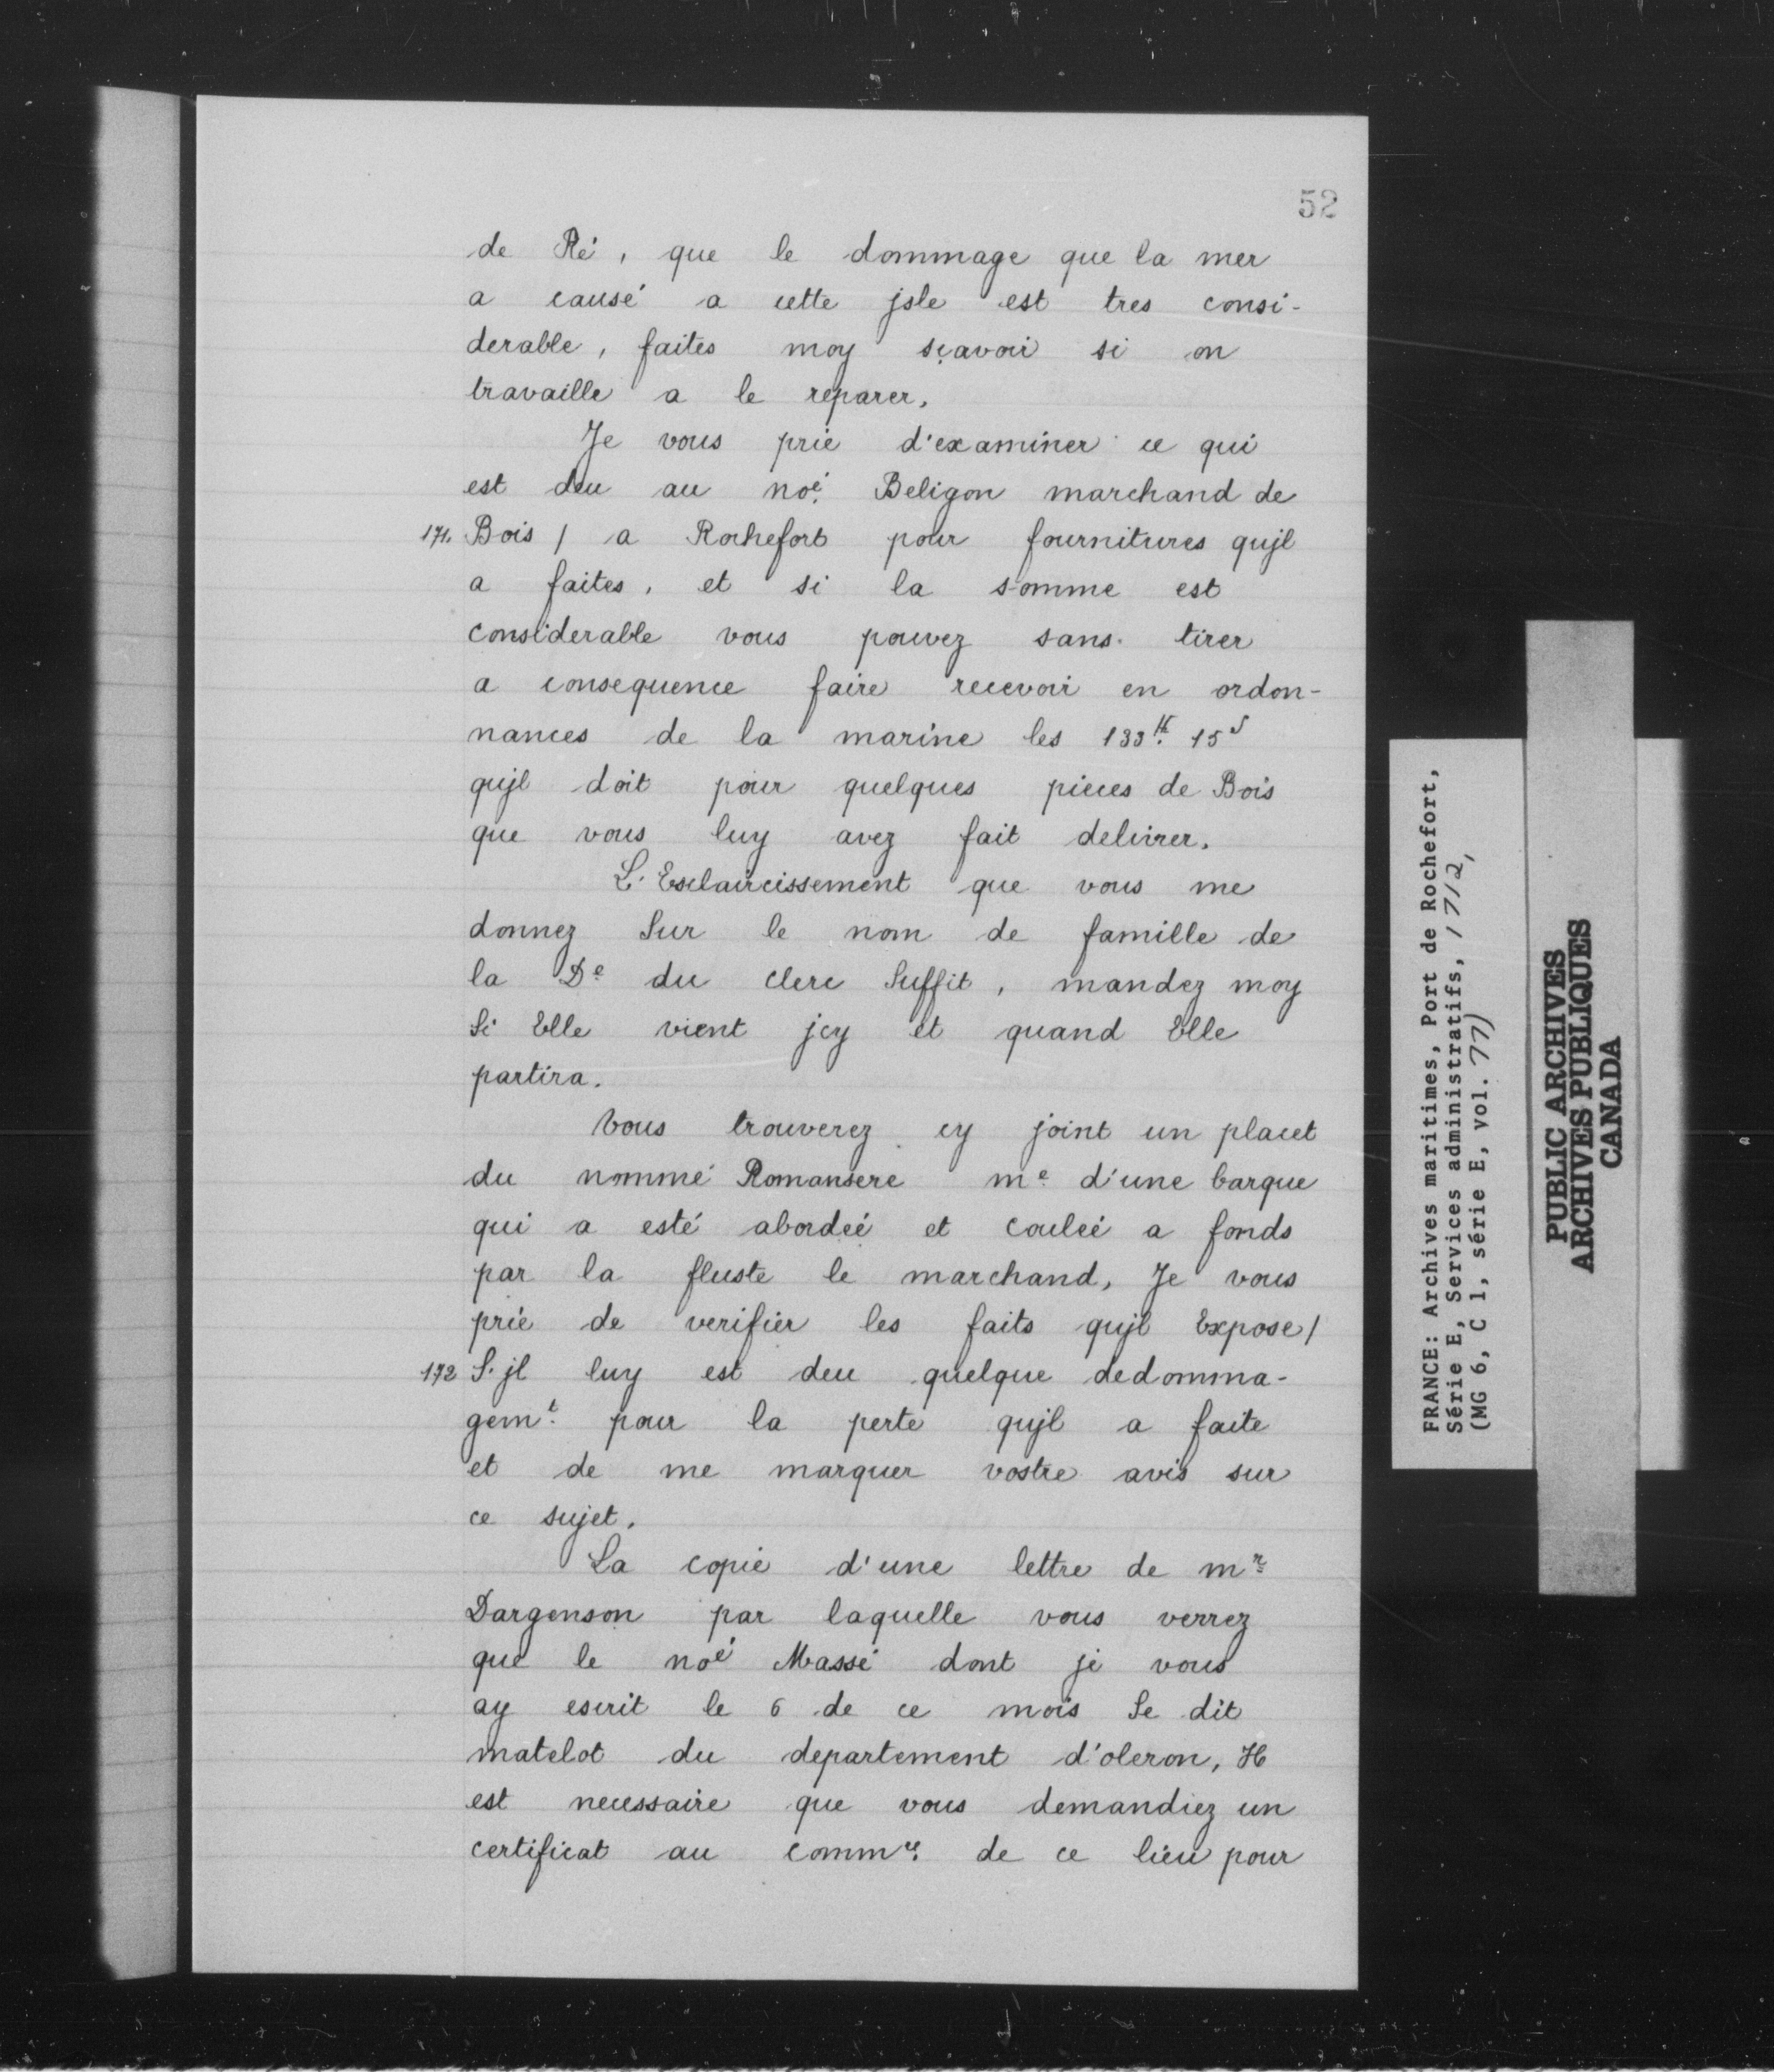 52
de Ré, que le dommage que la mer
a causé a cette jsle est tres consi-
derable, faites moy sçavoir si on
travaille a le reparer.
Je vous prie d'examiner ce qui
est deu au noé. Beligon marchand de
171. Bois / a Rochefort pour fournitures qujl
a faites, et si la somme est
considerable vous pouvez sans tirer
a consequence faire recevoir en ordon-
nances de la marine les 133lt. 15s
qujl doit pour quelques pieces de Bois
que vous luy avez fait delivrer.
L'Esclaircissement que vous me
donnez Sur le nom de famille de
la De du clerc Suffit, mandez moy
Si Elle vient jcy et quand Elle
partira.
Vous trouverez cy joint un placet
du nommé Romansere me d'une barque
qui a esté abordeé et couleé a fonds
par la fluste le marchand, Je vous
prie de verifier les faits qujl Expose /
172 S'jl luy est deu quelque dedomma-
gemt. pour la perte qujl a faite
et de me marquer vostre avis sur
ce sujet.
La copie d'une lettre de mr
Dargenson par laquelle vous verrez
que le noé Massé dont je vous
ay escrit le 6 de ce mois Se dit
matelot du departement d'oleron, Il
est necessaire que vous demandiez un
certificat au commre. de ce lieu pour
FRANCE: Archives maritimes, Port de Rochefort,
Série E, Services administratifs, 1712,
(MG 6, C 1, série E, vol. 77)
PUBLIC ARCHIVES
ARCHIVES PUBLIQUES
CANADA